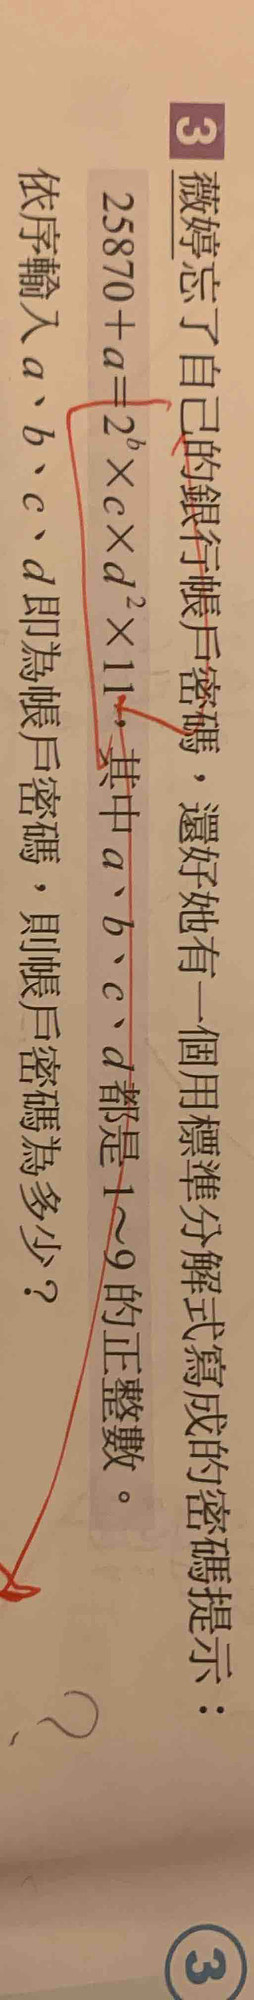 3 薇婷忘了自己的銀行帳戶密碼，還好她有一個用標準分解式寫成的密碼提示：
25870＋a＝2ᵇ×c×d²×11，其中 a、b、c、d 都是 1～9 的正整數。
依序輸入 a、b、c、d 即為帳戶密碼，則帳戶密碼為多少？
?
3